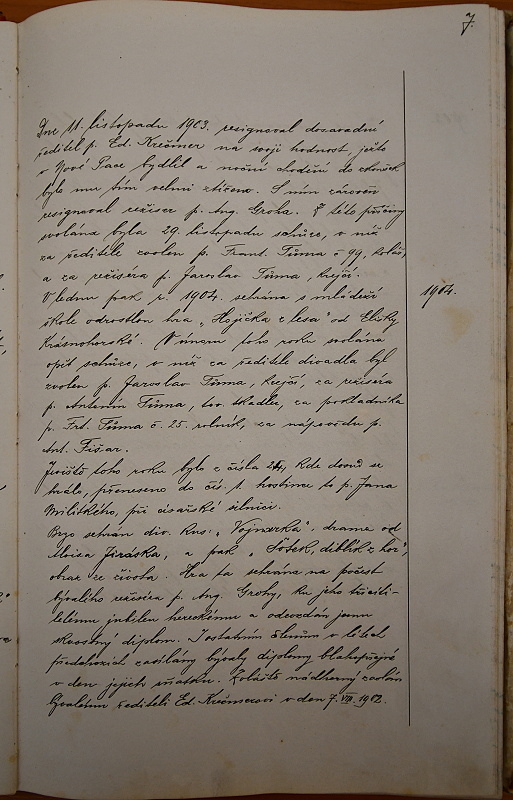 7.
Dne 11. listopadu 1903. resignoval dosavadní
ředitel p. Ed. Krečmer na svoji hodnost, ježto
v Nové Pace bydlil a noční chodění do zkoušek
bylo mu tím velmi ztíženo. S ním zároveň
resignoval režiser p. Ang. Groha. Z této příčiny
svolána byla 29. listopadu schůze, v níž
za ředitele zvolen p. Frant. Tůma č 99, kolář,
a za režiséra p. Jaroslav Tůma, krejčí.
V lednu pak r. 1904. sehrána s mládeží
1904.
škole odrostlou hra "Hojička z lesa" od Elišky
Krásnohorské. V únoru toho roku svolána
opět schůze, v níž za ředitele divadla byl
zvolen p. Jaroslav Tůma, krejčí, za režiséra
p. Antonín Tůma, tov. tkadlec, za pokladníka
p. Frt. Tůma č. 25. rolník, za nápovědu p.
Ant. Fišar.
Jeviště toho roku bylo z čísla 24, kde dosud se
hrálo, přeneseno do čís. 1. hostince to p. Jana
Militkého, při císařské silnici.
Brzo sehrán div. kus: "Vojnarka", drama od
Aloisa Jiráska, a pak "Šotek, diblík z hor",
obraz ze života. Hra ta sehrána na počest
bývalého režiséra p. Ang. Grohy, ku jeho třicíti-
letému jubileu hereckému a odevzdán jemu
skvostný diplom. I ostatním členům v létech
předešlých zasílány bývaly diplomy blahopřejné
v den jejich sňatku. Zvláště nádherný zaslán
bývalému řediteli Ed. Krečmerovi v den 7. VIII. 1902.